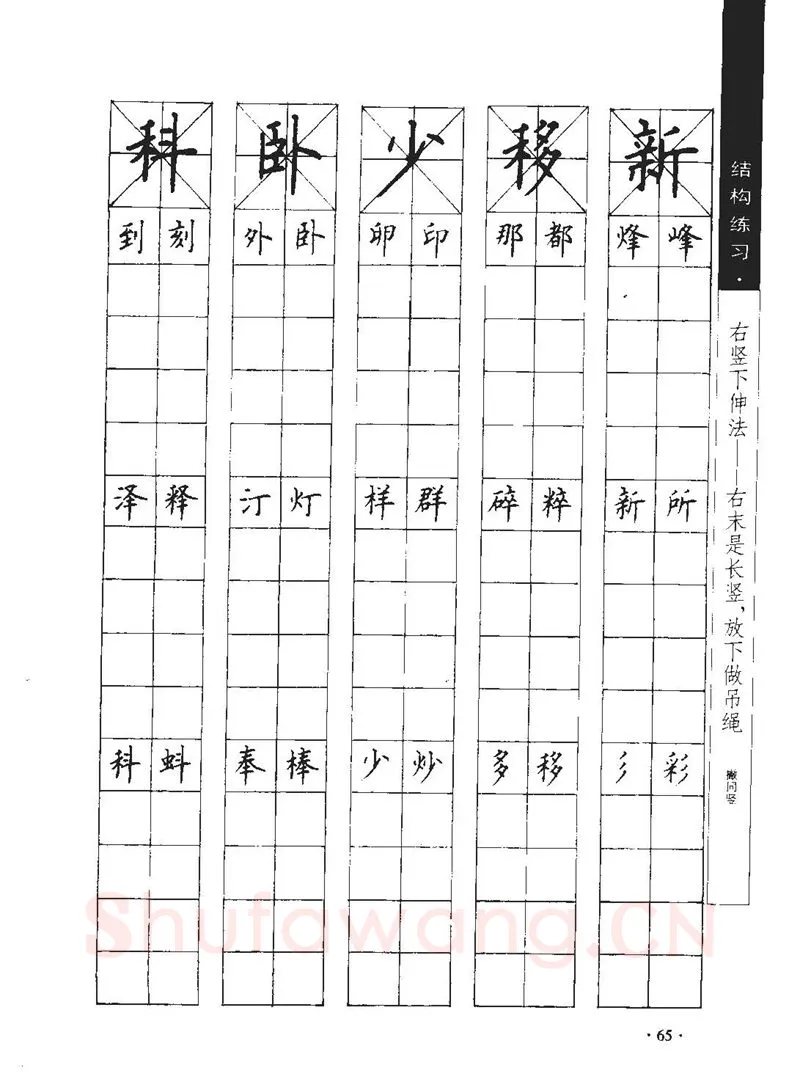 结构练习·
右竖下伸法——右末是长竖，放下做吊绳
撇同竖
科 卧 少 移 新
到 刻 外 卧 卯 印 那 都 烽 峰
泽 释 汀 灯 样 群 碎 粹 新 所
科 蚪 奉 棒 少 炒 多 移 彡 彩
Shufawang.CN
·65·